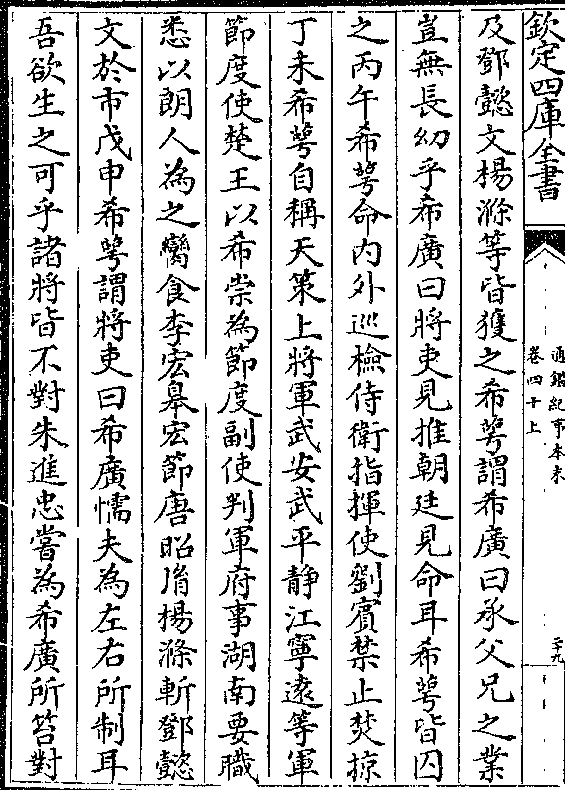 欽定四庫全書
通鑑紀事本末
卷四十上
二十九
及鄧懿文楊滌等皆獲之希萼謂希廣曰承父兄之業
豈無長幼乎希廣曰將吏見推朝廷見命耳希萼皆囚
之丙午希萼命内外巡檢侍衛指揮使劉賓禁止焚掠
丁未希萼自稱天策上將軍武安武平静江寧遠等軍
節度使楚王以希崇為節度副使判軍府事湖南要職
悉以朗人為之臠食李宏臯宏節唐昭胤楊滌斬鄧懿
文於市戊申希萼謂將吏曰希廣懦夫為左右所制耳
吾欲生之可乎諸將皆不對朱進忠嘗為希廣所笞對